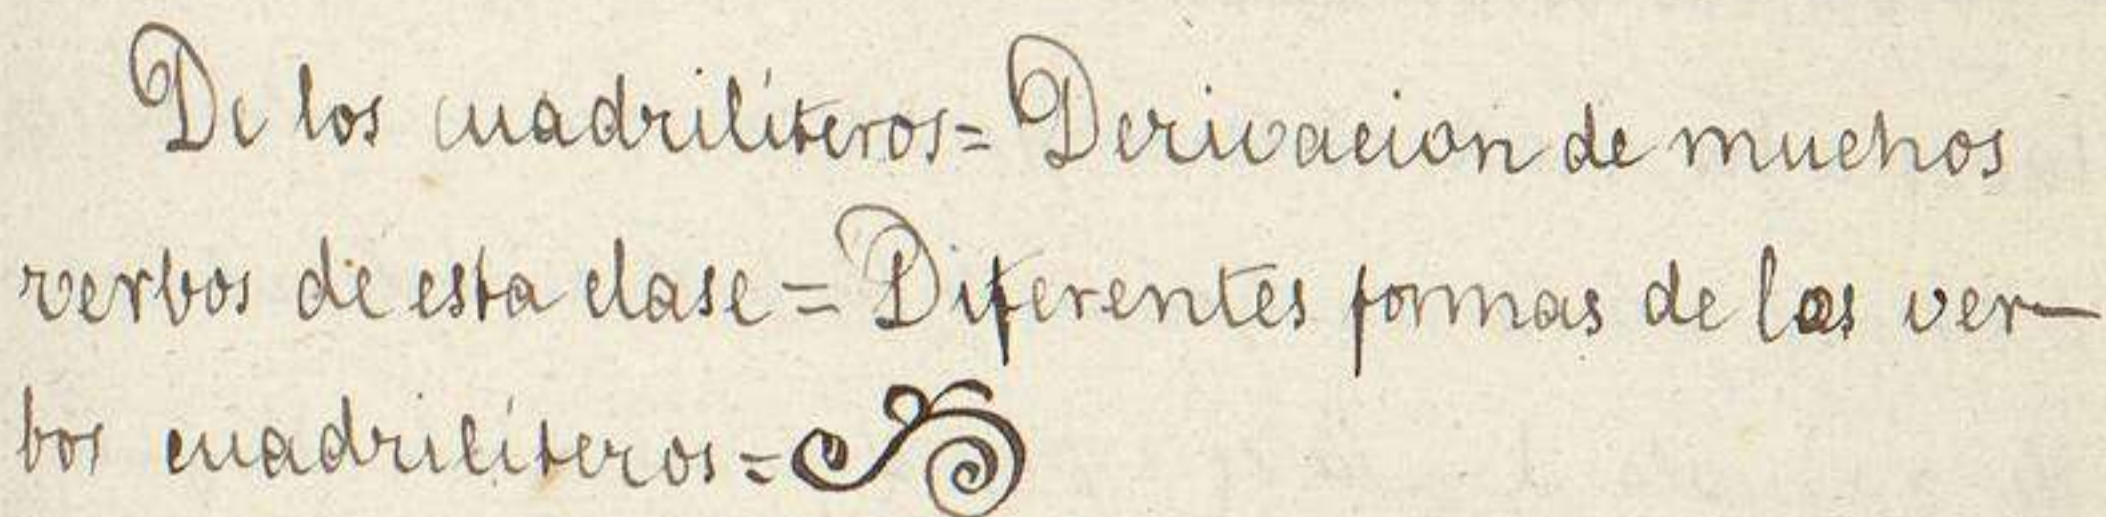 De los cuadrilíteros= Derivacion de muchos
verbos de esta clase = Diferentes formas de los ver-
bos cuadrilíteros =